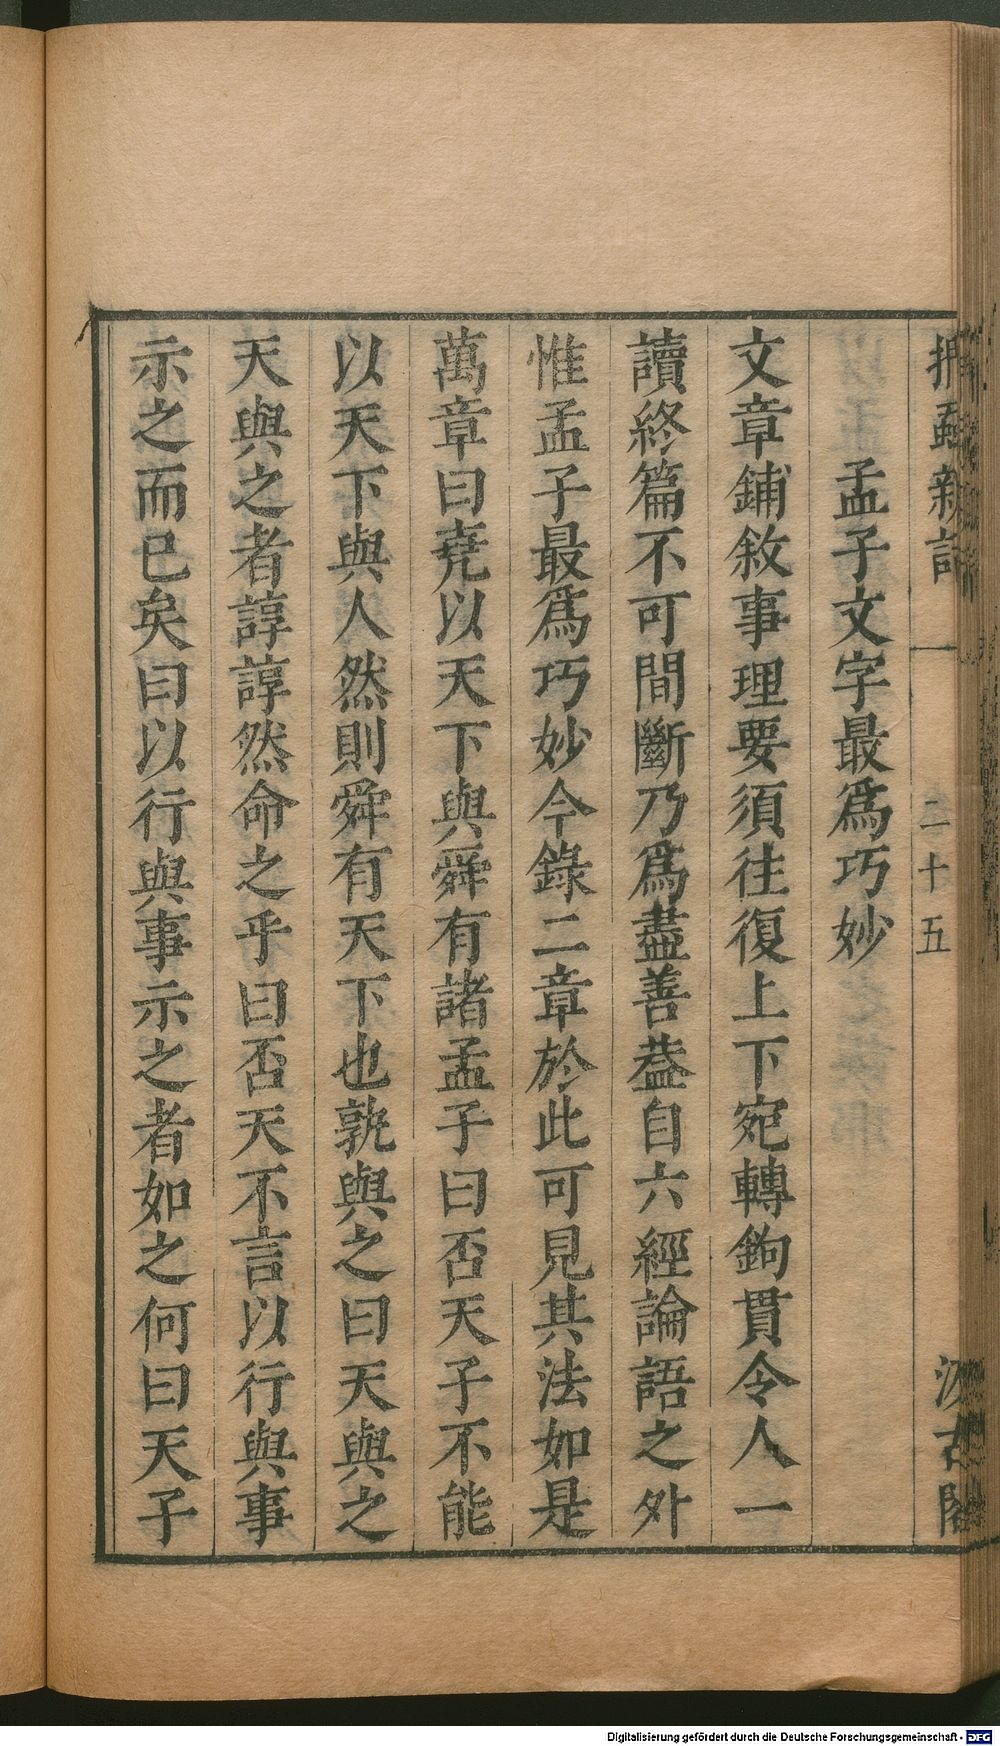 捫蝨新話 一 二十五 汲古閣
孟子文字最爲巧妙
文章鋪敘事理要須往復上下宛轉鉤貫令人一
讀終篇不可間斷乃爲盡善葢自六經論語之外
惟孟子最爲巧妙今錄二章於此可見其法如是
萬章曰堯以天下與舜有諸孟子曰否天子不能
以天下與人然則舜有天下也孰與之曰天與之
天與之者諄諄然命之乎曰否天不言以行與事
示之而已矣曰以行與事示之者如之何曰天子
Digitalisierung gefördert durch die Deutsche Forschungsgemeinschaft - DFG